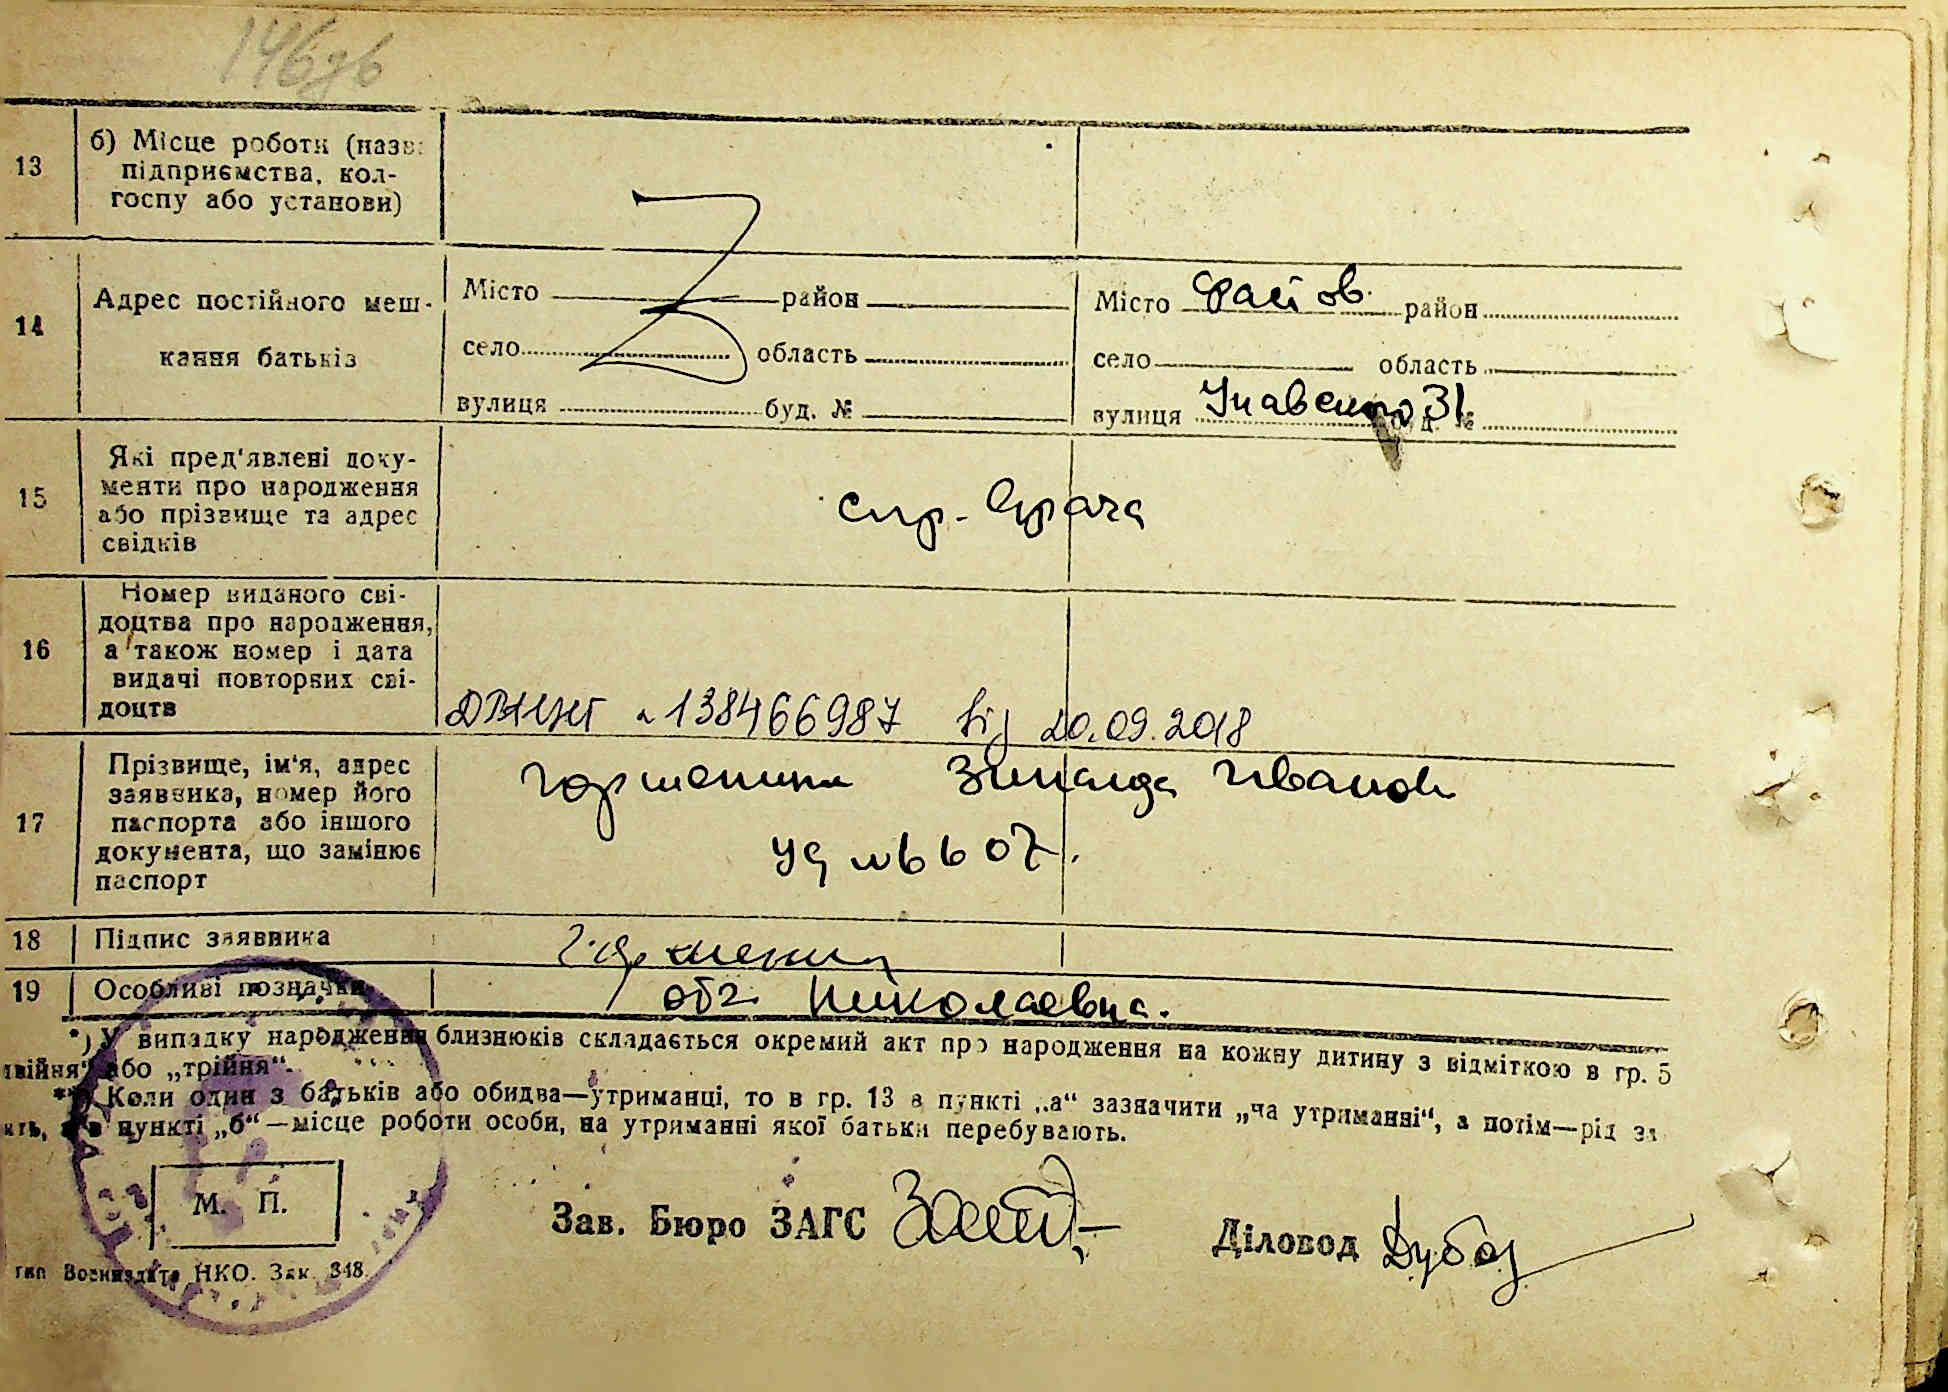 146зв
13
б) Місце роботи (назв
підприємства, кол-
госпу або установи)
14
Адрес постійного меш-
кання батьків
Місто район
село область
вулиця буд. №
Місто район
село область
вулиця 31 №
15
Які пред'явлені доку-
менти про народження
або прізвище та адрес
свідків
спр. врача
16
Номер виданого сві-
доцтва про народження,
а також номер і дата
видачі повторних сві-
доцтв
№ 138466987 від 20.09.2018
17
Прізвище, ім'я, адрес
заявника, номер його
паспорта або іншого
документа, що замінює
паспорт
Горшенина Зинаида Иванов
18
Підпис заявника
Горшенина
19
Особливі позначки
Николаевна.
*) У випадку народження близнюків складається окремий акт про народження на кожну дитину з відміткою в гр. 5
або „трійня“.
**) Коли один з батьків або обидва—утриманці, то в гр. 13 в пункті „а“ зазначити „на утриманні“, а потім—рід за
пункті „б“—місце роботи особи, на утриманні якої батьки перебувають.
М. П.
Зав. Бюро ЗАГС
Діловод
тип Воениздата НКО. Зак. 348